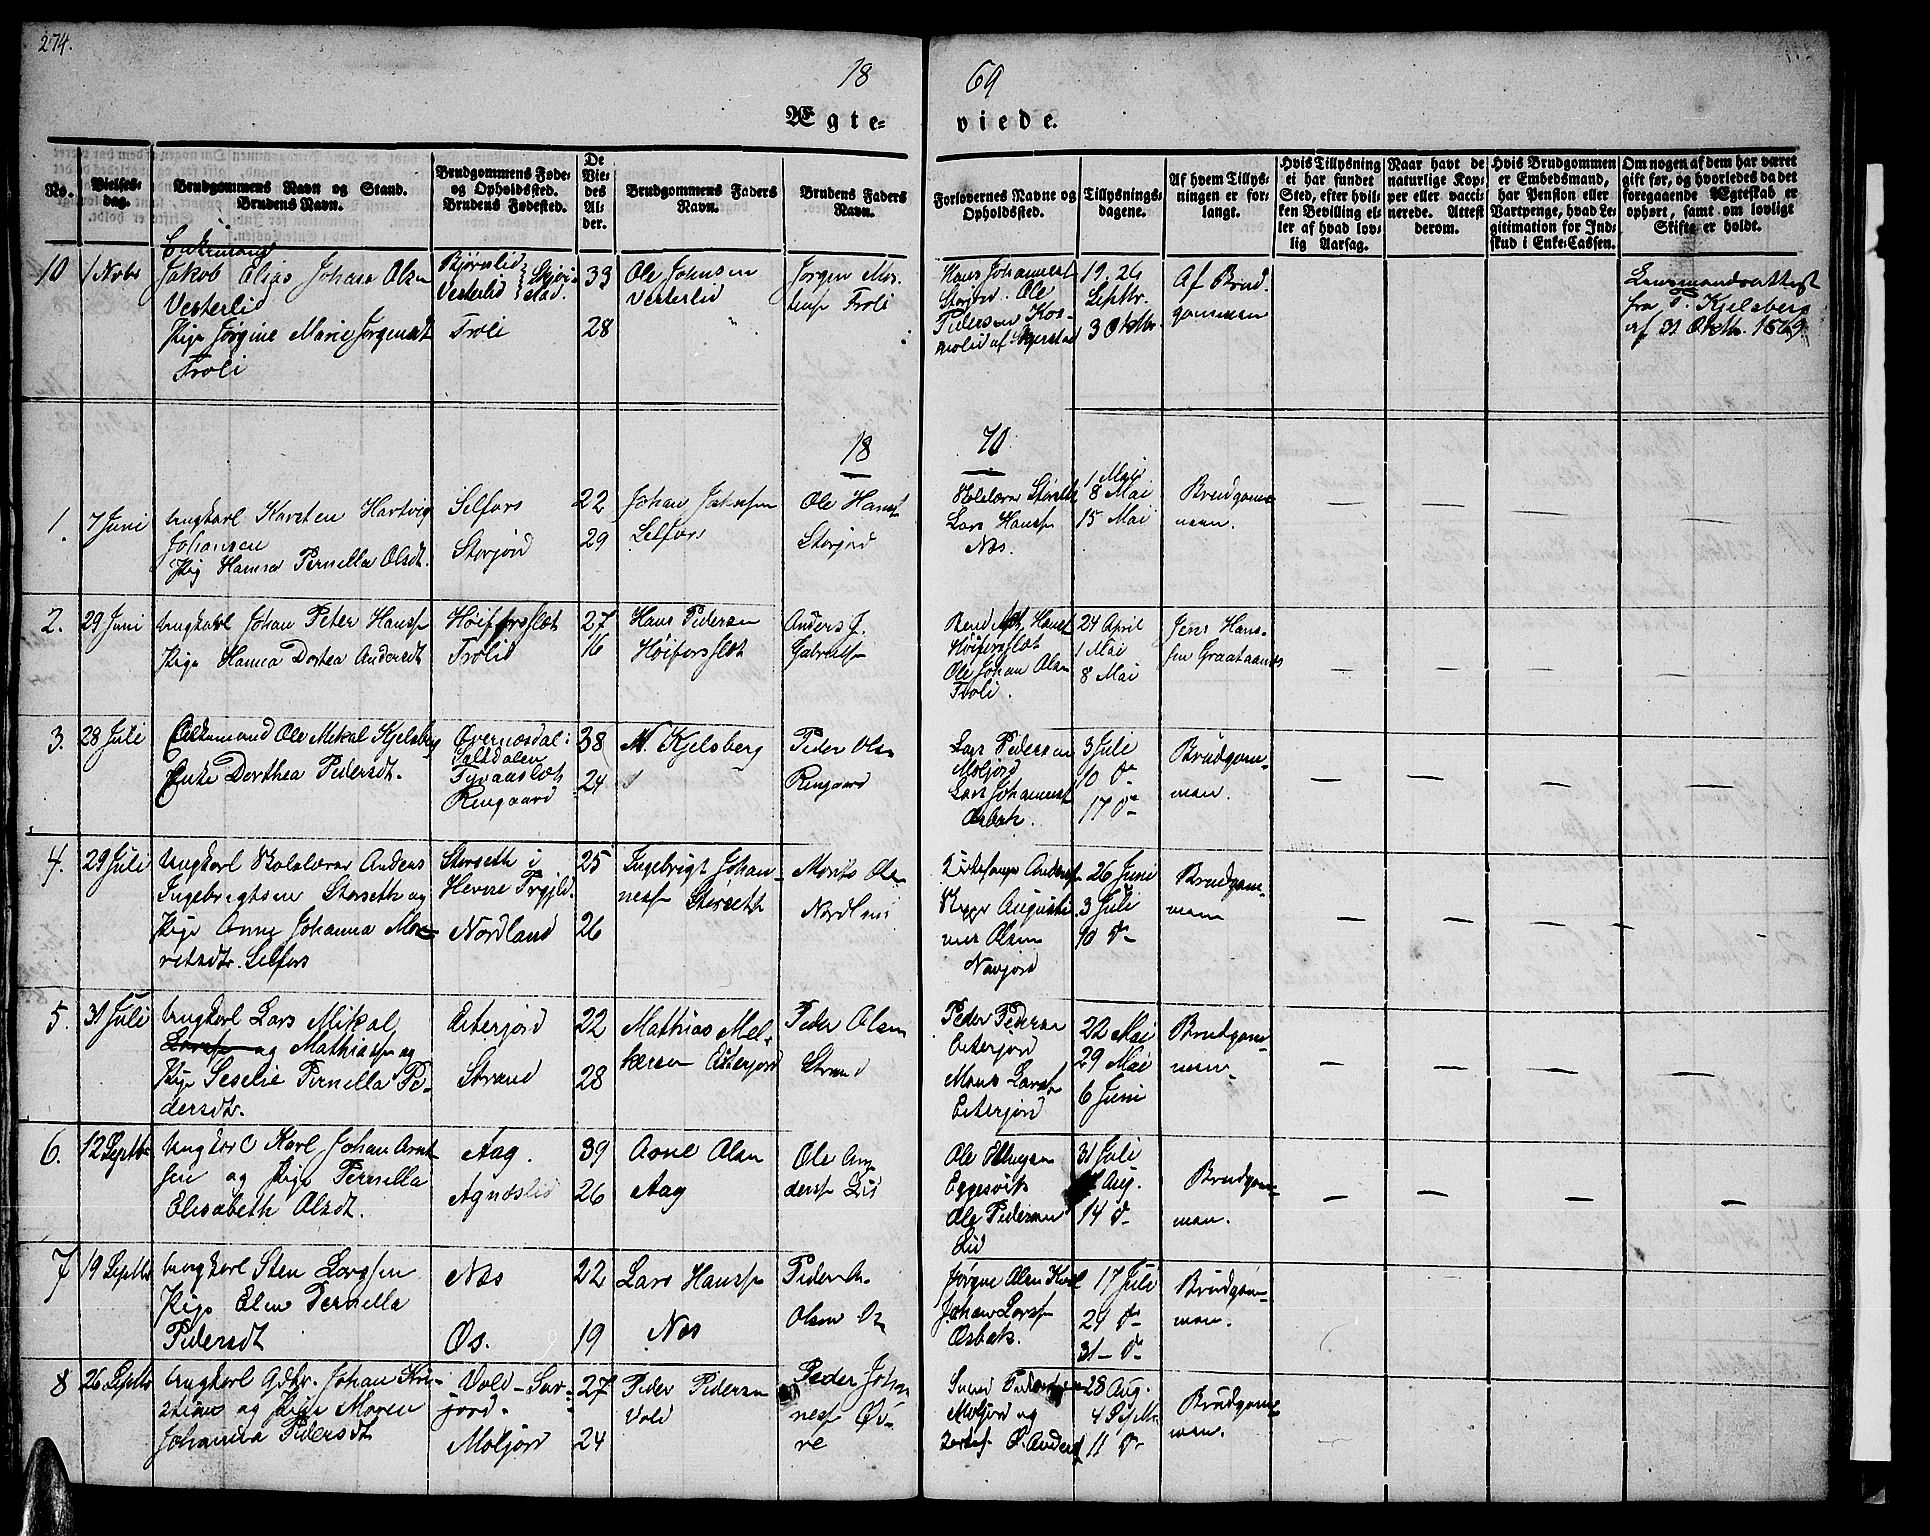 274.
18 69
Ægte- viede.
No.
Vielses-
dag.
Brudgommens Navn og Stand.
Brudens Navn.
Brudgommens Føde-
og Opholdssted.
Brudens Fødested.
De
Vie-
des
Al-
der.
Brudgommens Faders
Navn.
Brudens Faders
Navn.
Forlovernes Navne og
Opholdssted.
Tillysnings-
dagene.
Af hvem Tillys-
ningen er for-
langt.
Hvis Tillysning
ei har fundet
Sted, efter hvil-
ken Bevilling el-
ler af hvad lov-
lig Aarsag.
Naar havt de
naturlige Kop-
per eller vacci-
nerede. Attest
derom.
Hvis Brudgommen
er Embedsmand,
har Pension eller
Vartpenge, hvad Le-
gitimation for Ind-
skud i Enke-Cassen.
Om nogen af dem har været
gift før, og hvorledes da det
foregaaende Ægteskab er
ophørt, samt om lovligt
Skifte er holdt.
10 1 Novbr
Enkemand
Jakob Elias Johan Olsen
Vesterlid
Pige Jørgine Marie Jørgensdt
Troli
Bjørnlid
Vesterlid
Troli
33
28
Ole Johnsen
Vesterlid
Jørgen Mor-
tens Troli
Hans Johannes
Storjord. Ole
Pedersen Kos-
molid af Skjerstad
19. 26
Septbr.
3 Oktbr.
Af Brud-
gommen
Lensmandsattest
fra P. Kjelsberg
af 31 Oktbr. 1869
18 70
1. 7 Juni
Ungkarl Karsten Hartvig
Johansen
Pig Hanna Pernella Olsdt.
Selfors
Storjord
22
29
Johan Jakobsen
Selfors
Ole Hans
Storjord
Skolelærer Storseth
Lars Hanss
Næs.
1 Mai
8 Mai
15 Mai
Brudgom-
men.
2. 29 Juni
Ungkarl Johan Peter Hanss
Pige Hanna Dortea Andersdt
Høiforslet
Trolid
27
16
Hans Pedersen
Høiforslet
Anders J.
Gabriels
Hans
Høiforslet
Ole Johan Olsen
Troli.
24 April
1 Mai
8 Mai
Jens Han-
sen Graataanes
3. 28 Juli
Enkemand Ole Mikal Kjelsberg
Enke Dorthea Pedersdt.
Evernæsdal i
Saltdalen
Ringaard
38
24
M. Kjelsberg
Peder Olsen
Ringaard
Lars Pedersen
Moljord
Lars Johannes
Osbak.
3 Juli
10 D-
17 D-
Brudgom-
men.
4. 29 Juli
Ungkarl Skolelærer Anders
Ingebrigtsen Storseth og
Pige Anne Johanna Mo-
ritsdtr. Selfors
Storseth i
Hevne
Nordland
25
26
Ingebrigt Johan-
ness Storseth
Morits Olsen
Nordland
Kirkesanger Anders
Augusti-
nus Olsen
Navjord
26 Juni
3 Juli
10 D-
Brudgom-
men
5. 31 Juli
Ungkarl Lars Mikal
Larss og Mathiassen og
Pige Seselie Pernella Pe-
dersdtr.
Esterjord
Strand
22
28
Mathias Mel-
kersen Esterjord
Peder Olsen
Strand
Peder Pedersen
Esterjord
Mons Larss
Esterjord
22 Mai
29 Mai
6 Juni
Brudgom-
men.
6. 12 Septbr
Ungkarl Karl Johan Arnt-
sen og Pige Pernella
Elisabeth Olsdt.
Aag.
Agnæslid
39
26
Arne Olsen
Aag
Ole An-
ders Lid
Ole
Eggesvik
Ole Pedersen
Lid
31 Juli
7 Aug.
14 D-
Brudgom-
men.
7 19 Septbr
Ungkarl Sten Larssen
Pige Elen Pernella
Pedersdt
Næs
Os.
22
19
Lars Hanss
Næs
Peder A.
Olsen Os
Jørgne Olsen
Johan Larss
Osbak.
17 Juli
24 D-
31- D-
Brudgom-
men.
8 26 Septbr
Ungkarl Gdbr. Johan Kri-
stian og Pige Maren
Johanna Pedersdt
Vold - Sør-
jord.
Moljord
27
24
Peder Pedersen
Vold
Peder Johan
ness Øv-
re
Svend Pedersen
Moljord og
Anders
28 Aug.
4 Septbr.
11 D-
Brudgom-
men.